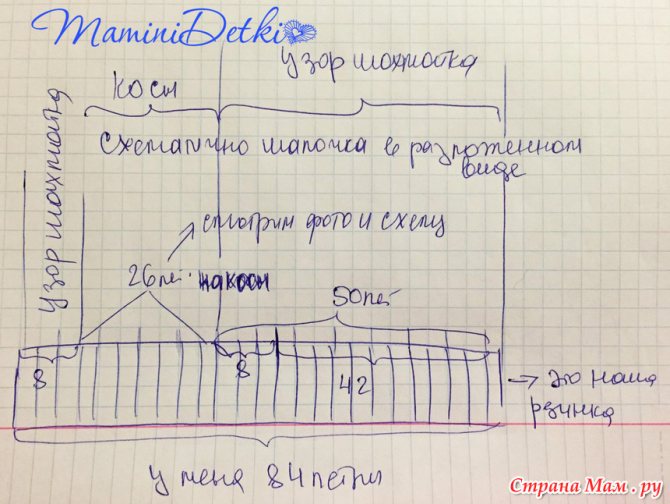 MaminiDetki
узор шахматка
косы
узор шахматка
Схематично шапочка в разложенном
виде
смотрим фото и схему
26 пет. на косы
50 пет
8
8
42
→ это наша
резинка
у меня 84 петли
Страна Мам.ру